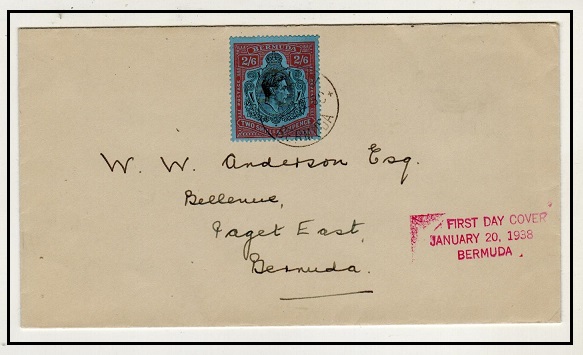 BERMUDA
2/6 2/6
TWO SHILLINGS & SIX PENCE
W. W. Anderson Esq.
Bellevue,
Paget East,
Bermuda.
FIRST DAY COVER
JANUARY 20, 1938
BERMUDA